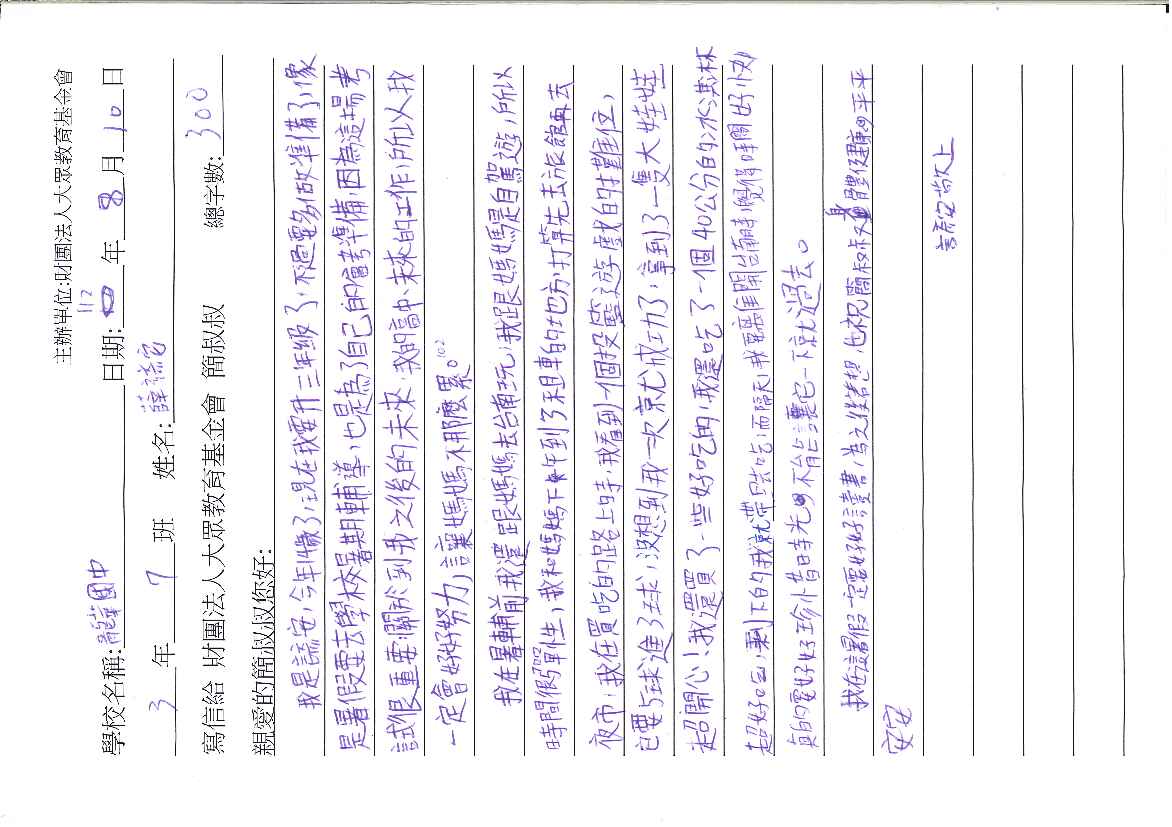 主辦單位:財團法人大眾教育基金會
學校名稱:龍華國中 日期: 112 年 8 月 10 日
3 年 7 班 姓名: 薛諺安 總字數: 300
寫信給 財團法人大眾教育基金會 簡叔叔
親愛的簡叔叔您好:
我是諺安,今年14歲了,現在我要升三年級了,不過要多做準備了,像
是暑假要去學校暑期輔導,也是為了自己的會考準備,因為這場考
試很重要,關於到我之後的未來,我的高中、未來的工作,所以我
一定會好好努力,讓媽媽不用那麼累。102
我在暑輔前我還跟媽媽去台南玩,我跟媽媽是自駕遊,所以
時間很彈性,我和媽媽下午到了租車的地方,打算先去旅館再去
夜市,我在買吃的路上時,我看到一個投籃遊戲的攤位,
只要5球進了3球,沒想到我一次就成功了,拿到了一隻大娃娃
超開心!我還買了一些好吃的,我還吃了一個40公分的冰淇淋
超好吃,剩下的我就帶回去吃,而隔天,我要離開台南時,覺得時間好快
真的要好好珍惜時光,不能讓它一下就過去。
我在這暑假一定要好好讀書,為之後著想,也祝簡叔叔身體健康,平平
安安
諺安敬上